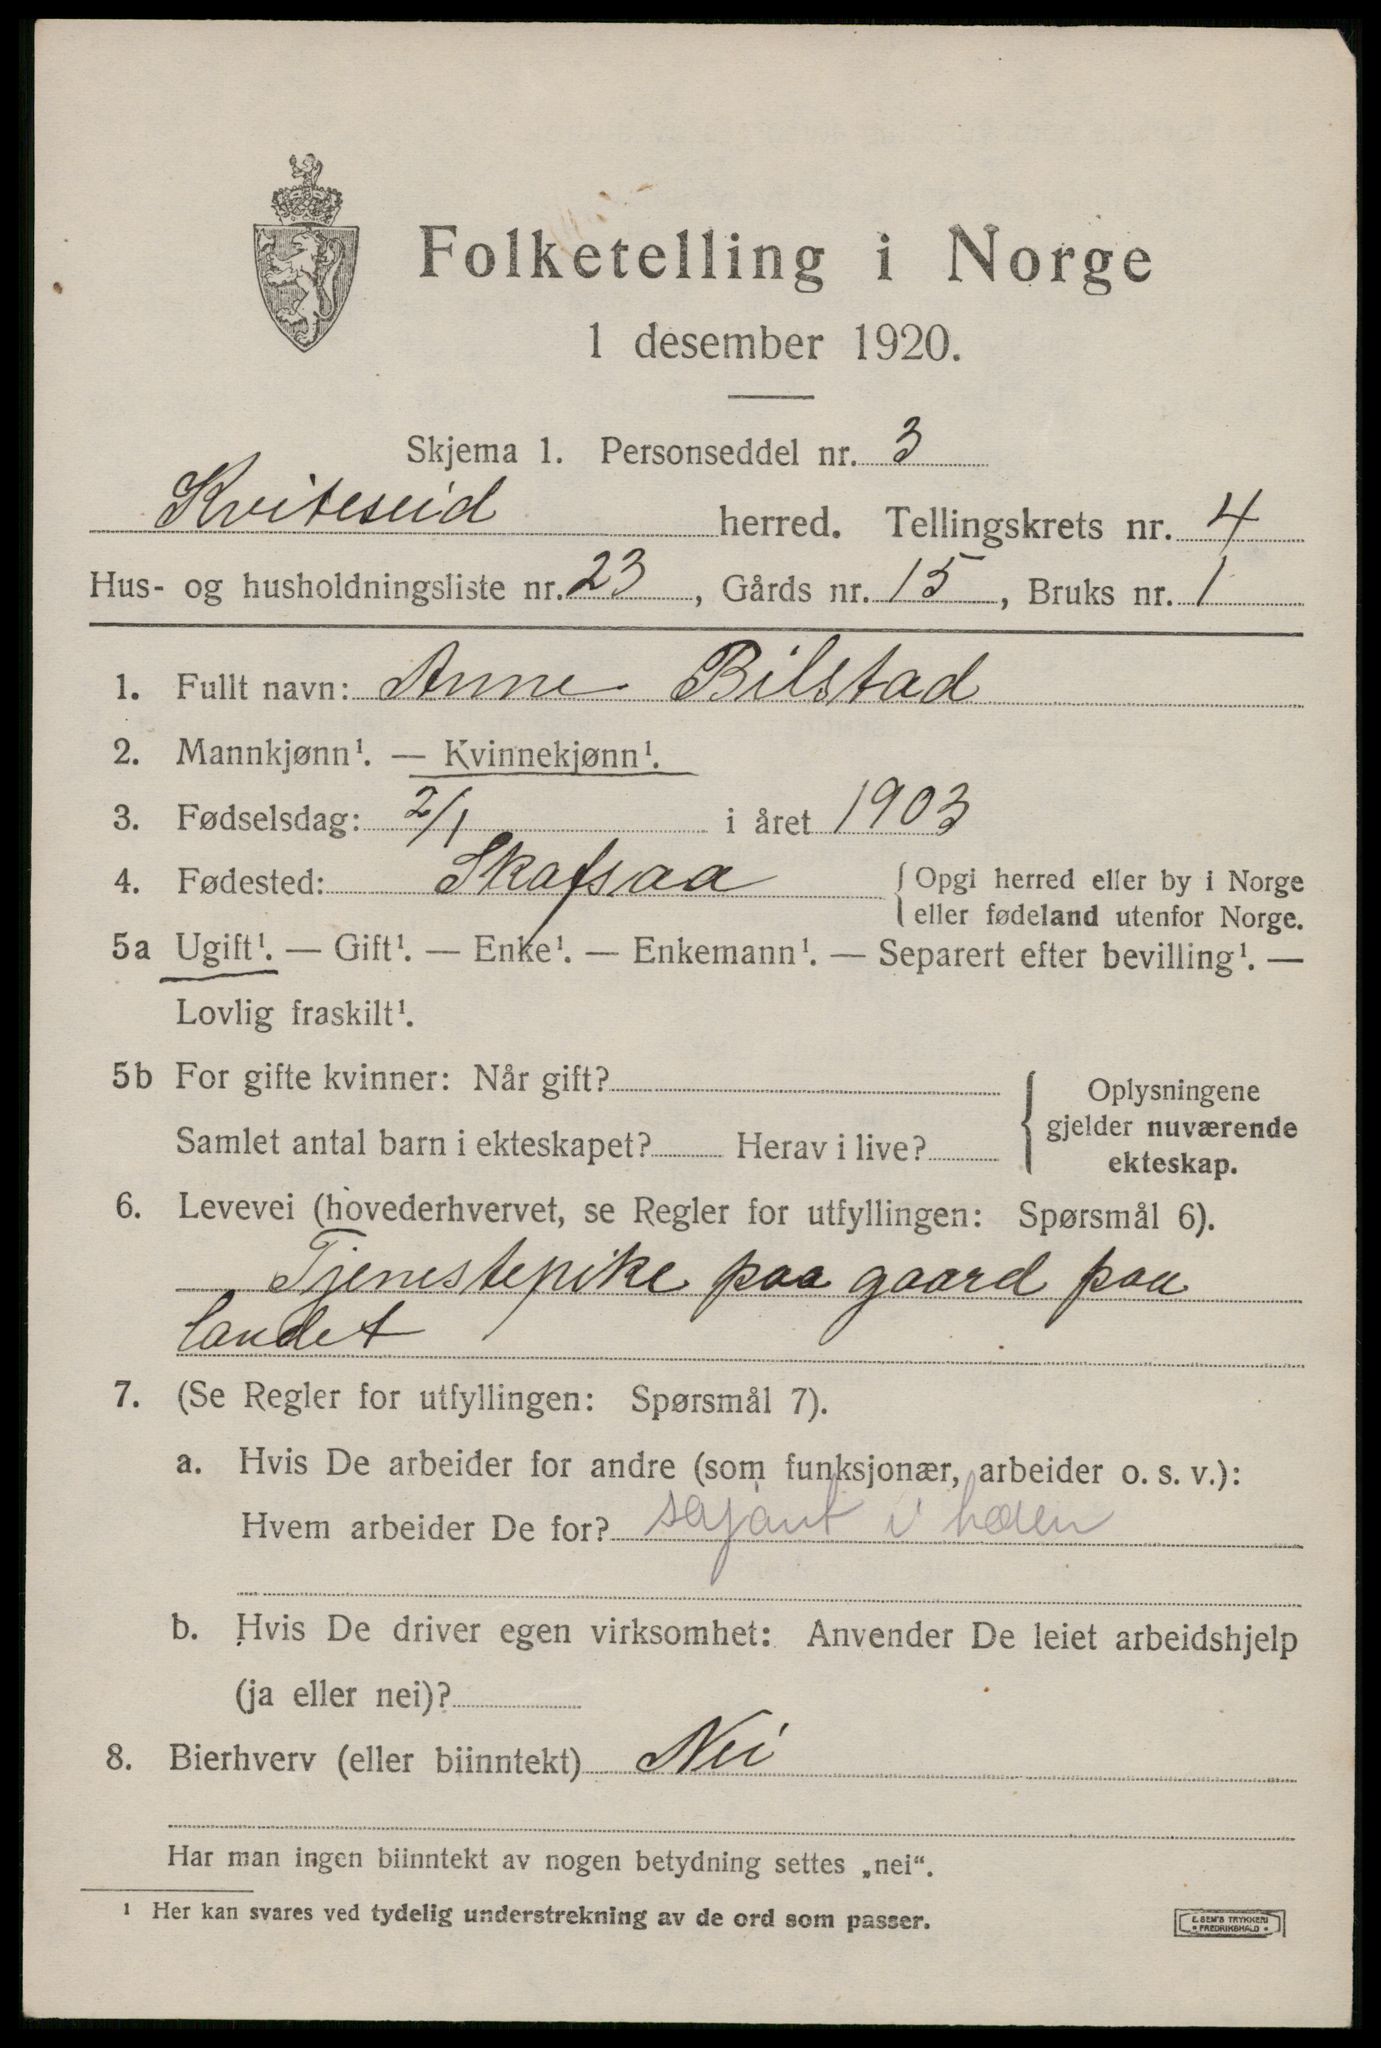 Folketelling i Norge
1 desember 1920.
Skjema 1. Personseddel nr. 3
Kviteseid herred. Tellingskrets nr. 4
Hus- og husholdningsliste nr. 23, Gårds nr. 15, Bruks nr. 1
1. Fullt navn: Anne Bilstad
2. Mannkjønn¹. — Kvinnekjønn¹.
3. Fødselsdag: 2/1 i året 1903
4. Fødested: Skafsaa { Opgi herred eller by i Norge
eller fødeland utenfor Norge.
5a Ugift¹. — Gift¹. — Enke¹. — Enkemann¹. — Separert efter bevilling¹. —
Lovlig fraskilt¹.
5b For gifte kvinner: Når gift?
Samlet antal barn i ekteskapet? Herav i live?
Oplysningene
gjelder nuværende
ekteskap.
6. Levevei (hovederhvervet, se Regler for utfyllingen: Spørsmål 6).
Tjenestepike paa gaard paa
landet
7. (Se Regler for utfyllingen: Spørsmål 7).
a. Hvis De arbeider for andre (som funksjonær, arbeider o. s. v.):
Hvem arbeider De for? i
b. Hvis De driver egen virksomhet: Anvender De leiet arbeidshjelp
(ja eller nei)?
8. Bierhverv (eller biinntekt) Nei
Har man ingen biinntekt av nogen betydning settes „nei“.
¹ Her kan svares ved tydelig understrekning av de ord som passer.
E. SEM'S TRYKKERI
• FREDRIKSHALD •